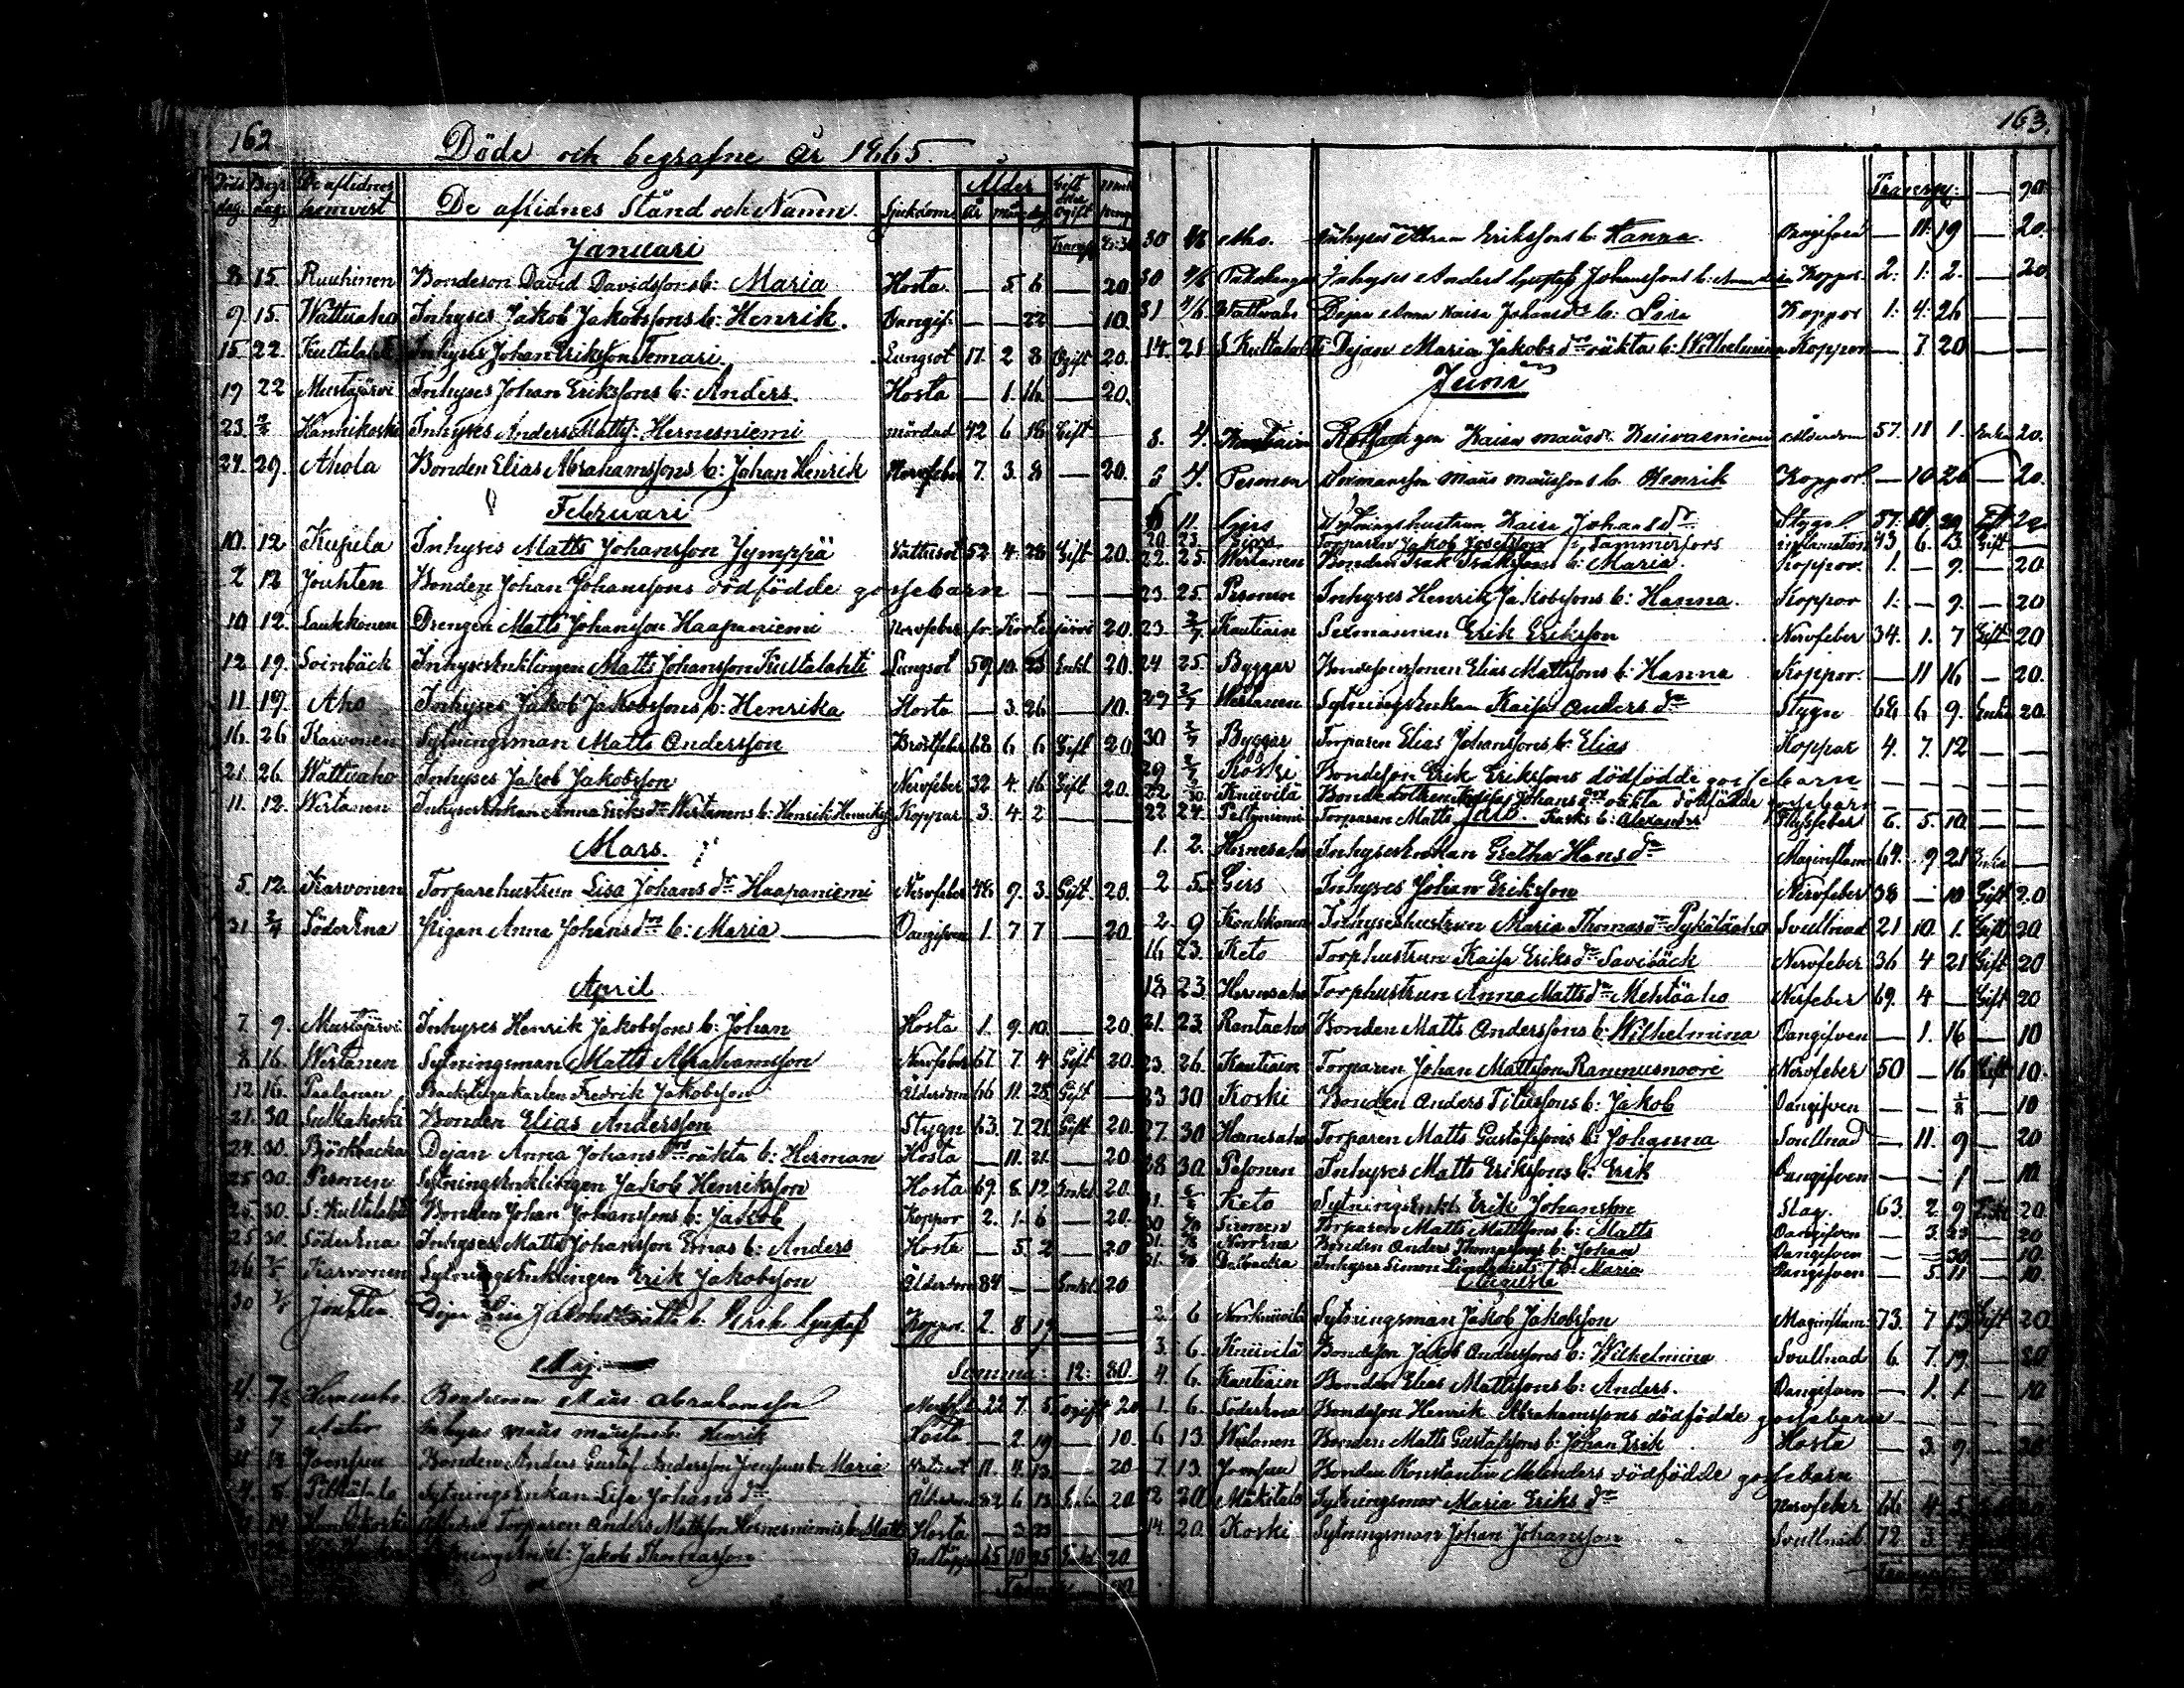 162
Döde och begrafne år 1865.
Döds dag. Begr. dag. De aflidnes hemvist De aflidnes Stånd och Namn. Sjukdoms Ålder år mån dag Gift eller ogift
Januari
8 15. Ruuhinen Bondeson David Davidssons b: Maria Hosta — 5 6 — 20
9. 15. Wattuaho Inhyses Jakob Jakobssons b: Henrik. Oangif. — — 22 — 10.
15. 22. Kultalahti Inhyses Johan Eriksson Temari Lungsot 17. 2 8 Ogift 20.
19 22 Mustajärvi Inhyses Johan Erikssons b: Anders. Hosta — 1. 16 — 20.
23. Hannikoski Inhyses Anders Matts: Hernesniemi mördad 42 6 18 Gift
24. 29. Ahola Bonden Elias Abrahamssons b: Johan Henrik Nervfeber 7. 3. 8 — 20.
Februari
10. 12 Kupila Inhyses Matts Johansson Jymppä Vattusot 52. 4. 28 Gift 20.
2 12 Jouhten Bonden Johan Johanssons dödfödde gossebarn — — —
10 12. Laukkonen Drengen Matts Johansson Haapaniemi Nervfeber fr. Kortesjärvi 20.
12. 19. Soinbäck Inhysesenklingen Matts Johansson Kultalahti Lungsot 59. 10. 23 Enkl. 20.
11 19. Aho Inhyses Jakob Jakobssons b: Henrika Hosta — 3. 26 — 10.
16. 26 Karvonen Sytningsman Matts Andersson Bröstfeber 68 6 6 Gift 20
21. 26. Wattuaho Inhyses Jakob Jakobsson Nervfeber 32 4. 16 Gift 20.
11. 12. Wertanen Inhysesenkan Anna Eriksdr Wertanens b: Henrik Koppor 3. 4 2 — —
Mars.
5. 12. Karvonen Torparehustrun Lisa Johansdr Haapaniemi Nervfeber 48 9. 3. Gift. 20.
31. 2/4 Söder Ena Pigan Anna Johansdrs b: Maria — Oangifven 1. 7 7 — 20
April
7 9. Mustajärvi Inhyses Henrik Jakobssons b: Johan Hosta 1. 9. 10. — 20.
8 16. Wertanen Sytningsman Matts Abrahamsson Nervfeber 67 7 4 Gift 20.
12 16. Paalanen Backstugukarlen Fredrik Jakobsson Ålderdom 66 11. 28 Gift —
21. 30. Sulkakoski Bonden Elias Andersson Stygn 63. 7. 21. Gift 20.
24. 30. Björkbacka Dejan Anna Johansdrs oäkta b: Herman Hosta — 11. 21. — 20
25 30. Pesonen Sytningsenklingen Jakob Henriksson Hosta 69. 8. 12 Enkl. 20.
25. 30. S: Kultalahti Bonden Johan Johanssons b: Jakob Koppor 2. 1. 6 — 20.
25 30. Söder Ena Inhyses Matts Johansson Enas b: Anders Hosta — 5. 2 — 20
26 7/5 Karvonen Sytningsenklingen Erik Jakobsson Ålderdom 84 — — Enkl. 20
30 7/5 Jouhten Dejan Lisa Jakobsdrs oäkta b. Erik Gustaf Koppor. 2. 8 19
Maj
Summa: 12: 80.
4. 7. Bondesonen Matts Abrahamsson 22 7. 5 ogift 20
3 7 Inhyses Matts Mattssons b: Henrik Hosta — 2. 19 — 10.
Joensuu Bonden Anders Gustaf Andersson Joensuus b: Maria 11. 11. 13. — 20
4. 8. Pitkäjala Sytningsenkan Lisa Johansdr Ålderdom 82 6 13 Enka 20
14. Torparen Anders Mattsson Hernesniemis b: Matts Hosta — 3. 23
Sytningsenkl: Jakob Thomasson 65 10 25 Enkl. 20
163.
Transp: — 90.
30 4/6 Aho. Inhyses Abram Erikssons b: Hanna. Oangifven — 11. 19 — 20.
30 4/6 Inhyses Anders Gustaf Johanssons b: Koppor. 2. 1. 2. — 20
31 4/6 Wattuaho Dejan Anna Kaisa Johansdrs b: Lisa Koppor 1. 4. 26 — —
14. 21 S. Kultalahti Dejan Maria Jakobsdrs oäkta b: Wilhelmina Koppor — 7 20 — —
Juni
3. 4. Kautiain Kaisa Mattsdr Kuivasniemi Ålderdom 57. 11 1. Enka 20.
3 4. Pesonen Matts Mattssons b. Henrik Koppor. — 10 26 — 20.
11. Girs Sytningshustrun Kaisa Johansdr Stygn 57. 29 Gift 20
20 23. Girs Torparen Jakob Josefsson fr. Tammerfors inflamation 43 6. 23. Gift —
22. 25. Wertanen Bonden Isak Isakssons b: Maria. Koppor. 1. — 9. — 20
23. 25. Pesonen Inhyses Henrik Jakobssons b: Hanna. Koppor 1. — 9. — 20
23 2/7 Kautiain Sexmannen Erik Eriksson Nervfeber 34. 1. 7 Gift 20
24 25. Byggar Bondesonssonen Elias Mattssons b: Hanna Koppor. — 11 16 — 20.
29 2/7 Wertanen Sytningsenkan Kaisa Andersdr Stygn 68 6 9. Enka 20.
30 2/7 Byggar Torparen Elias Johanssons b: Elias Koppor 4. 7. 12 — —
29 2/7 Koski Bondeson Erik Erikssons dödfödde gossebarn — — —
22 Knuivila Bondedottren Kaisa Johansdrs oäkta dödfödde gossebarn
22 24. Peltoniemi Torparen Matts Kasks b: Alexander Flussfeber 6. 5. 10. — —
Juli
1. 2. Hernesaho Inhysesenkan Gretha Hansdr Maginflam. 69. 9 21 Enka —
2 5. Girs Inhyses Johan Eriksson Nervfeber 38 — 10 Gift 20
2. 9 Konkkonen Inhyseshustrun Maria Thomasdr Pykäläaho Svullnad 21 10. 1. Gift 20
16 23. Keto Torphustrun Kaisa Eriksdr Savibäck Nervfeber 36 4 21 Gift 20
18 23. Hernesaho Torphustrun Anna Mattsdr Mehtäaho Nerfeber 69. 4 — Gift 20
21. 23. Rantaaho Bonden Matts Anderssons b: Wilhelmina Oangifven — 1. 16 — 10
23. 26. Kautiain Torparen Johan Mattsson Rammusnoori Nervfeber 50 — 16 Gift 10.
23 30 Koski Bonden Anders Titussons b: Jakob Oangifven — — 1/8 — 10
27. 30 Hernesaho Torparen Matts Gustafssons b: Johanna Svullnad — 11. 9 — 20
28 30. Pesonen Inhyses Matts Erikssons b: Erik Oangifven — — 1 — 10
31. Keto Sytningsenkl: Erik Johansson Slag. 63. 2. 9 Enkl. 20.
30 Siironen Torparen Matts Mattssons b: Matts Oangifven — 3. 23 — 20
31. Norr Ena Bonden Anders Thomassons b: Johan Oangifven — — 30 — 10.
31. Dalbacka Inhyses Simon Lindqvists b: Maria Oangifven — 5. 11 — 10.
Augusti
2. 6 Norrknuivila Sytningsman Jakob Jakobsson Maginflam. 73. 7 13 Gift 20
3. 6. Knuivila Bondeson Jakob Anderssons b: Wilhelmina Svullnad 6. 7. 19. — 20
4 6. Kautiain Bonden Elias Mattssons b: Anders. Oangifven — 1. 1. — 10
1. 6. Söder Ena Bondeson Henrik Abrahamssons dödfödde gossebarn — — —
6 13. Wiulanen Bonden Matts Gustafssons b: Johan Erik Hosta — 3. 9. — 20
7. 13. Joensuu Bonden Konstantin Melenders dödfödde gossebarn
12 20. Mäkitalo Sytningsmor Maria Eriksdr Nervfeber 66 4. 5.
14. 20. Koski Sytningsman Johan Johansson Svullnad. 72. 3.